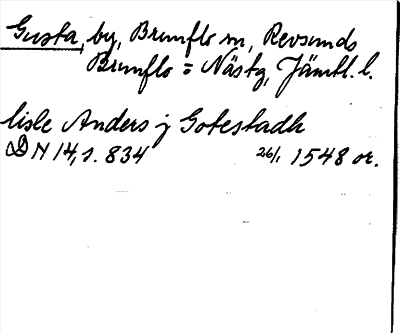 Gusta, by, Brunflo sn, Revsunds
Brunflo = Näskg, Jämtl. l.
lisle Anders j Gotestadh
DN 14, s. 834 26/1 1548 or.